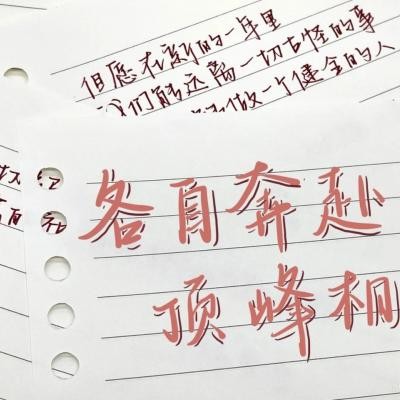 但愿在新的一年里
我们能远离一切古怪的事
做一个健全的人
各自奔赴
顶峰相